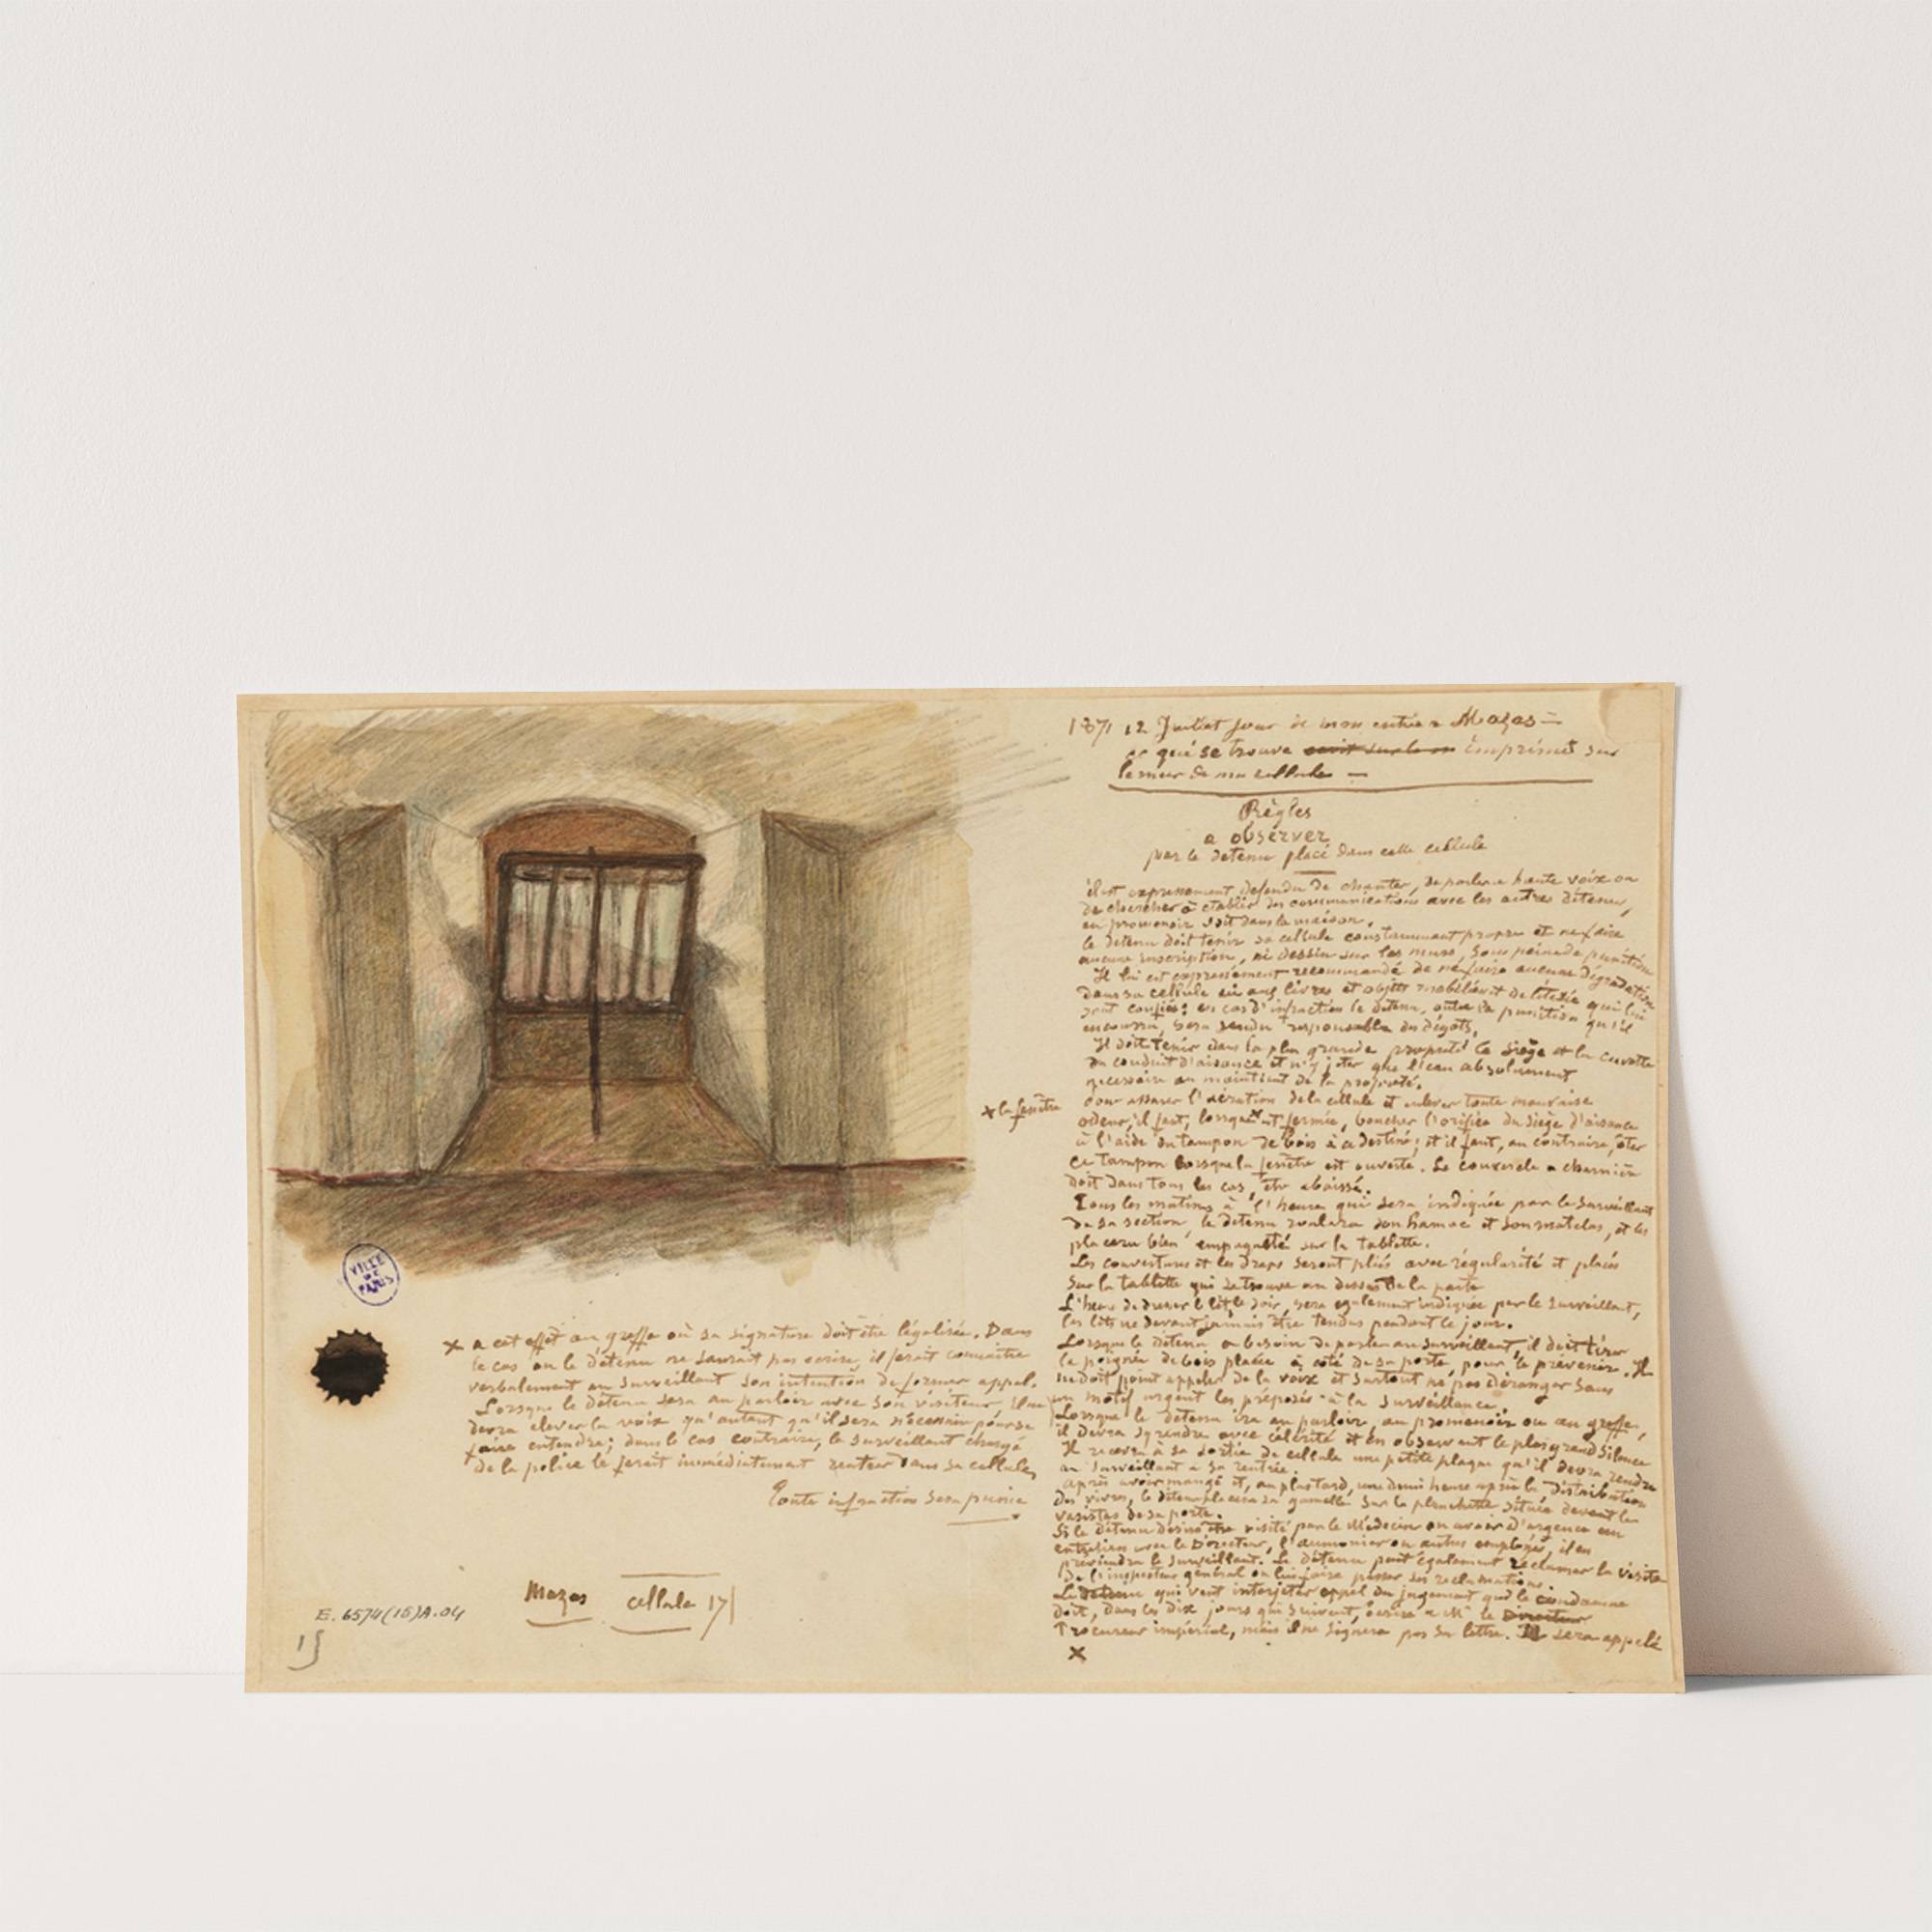 1871 12 Juillet jour de mon entrée a Mazas =
ce qui se trouve ecrit sur le m imprimé sur
le mur de ma cellule —
Règles
a observer
par le detenu placé dans cette cellule
il est expressement defendu de chanter, de parler a haute voix ou
de chercher à etablir des communications avec les autres détenus,
au promenoir soit dans la maison.
le detenu doit tenir sa cellule constamment propre et ne faire
aucune inscription, ni dessin sur les murs, sous peine de punition
Il lui est expressement recommandé de ne faire aucune dégradation
dans sa cellule ou aux livres et objets mobiliers et de literie qui lui
sont confiés; en cas d'infraction le detenu, outre la punition qu'il
encourra, sera rendu responsable des dégats.
Il doit tenir dans la plus grande propreté le siège et la cuvette
du conduit d'aisance et n'y jeter que l'eau absolument
necessaire au maintient de la propreté.
pour assurer l'aération de la cellule et enlever toute mauvaise
× la fenêtre
odeur, il faut, lorsque × est fermée, boucher l'orifice du siège d'aisance
à l'aide du tampon de bois à ce destiné; et il faut, au contraire, ôter
ce tampon lorsque la fenêtre est ouverte. Le couvercle a charnière
doit dans tous les cas, être abaissé.
Tous les matins à l'heure qui sera indiquée par le surveillant
de sa section le detenu roulera son hamac et son matelas, et les
placera bien empaqueté sur la tablette.
Les couvertures et les draps seront pliés avec régularité et placés
sur la tablette qui se trouve au dessus de la porte
L'heure de dresser le lit le soir, sera egalement indiquée par le surveillant,
les lits ne devant jamais être tendus pendant le jour.
Lorsque le détenu a besoin de parler au surveillant, il doit tirer
la poignée de bois placée à côté de sa porte, pour le prévenir. Il
ne doit point appeler de la voix et surtout ne pas déranger sans
un motif urgent les préposés à la surveillance.
Lorsque le detenu ira au parloir, au promenoir ou au greffe,
il devra s'y rendre avec célérité et en observant le plus grand silence
Il recevra à sa sortie de cellule une petite plaque qu'il devra rendre
au surveillant a sa rentrée.
après avoir mangé et, au plus tard, une demi heure après la distribution
des vivres, le détenu placera sa gamelle sur la planchette située devant le
vasistas de sa porte.
Si le détenu désire être visité par le Médecin ou avoir d'urgence un
entretien avec le Directeur, l'aumonier ou autres employés, il en
préviendra le surveillant. Le détenu peut également réclamer la visite
De l'inspecteur général ou lui faire passer ses reclamations.
Le detenu qui veut interjeter appel du jugement qui le condamne
doit, dans les dix jours qui suivent, écrire a Mr le Directeur
Procureur impérial, mais il ne signera pas sa lettre. Il sera appelé
×
× a cet effet au greffe où sa signature doit être légalisée. Dans
le cas ou le détenu ne saurait pas ecrire, il ferait connaitre
verbalement au surveillant son intention de former appel.
Lorsque le détenu sera au parloir avec son visiteur il ne
devra elever la voix qu'autant qu'il sera nécessaire pour se
faire entendre; dans le cas contraire, le surveillant chargé
de la police le ferait immédiatement rentrer dans sa cellule,
Toute infraction sera punie
VILLE
DE
PARIS
Mazas cellule 171
E. 6574(15)A.04
15